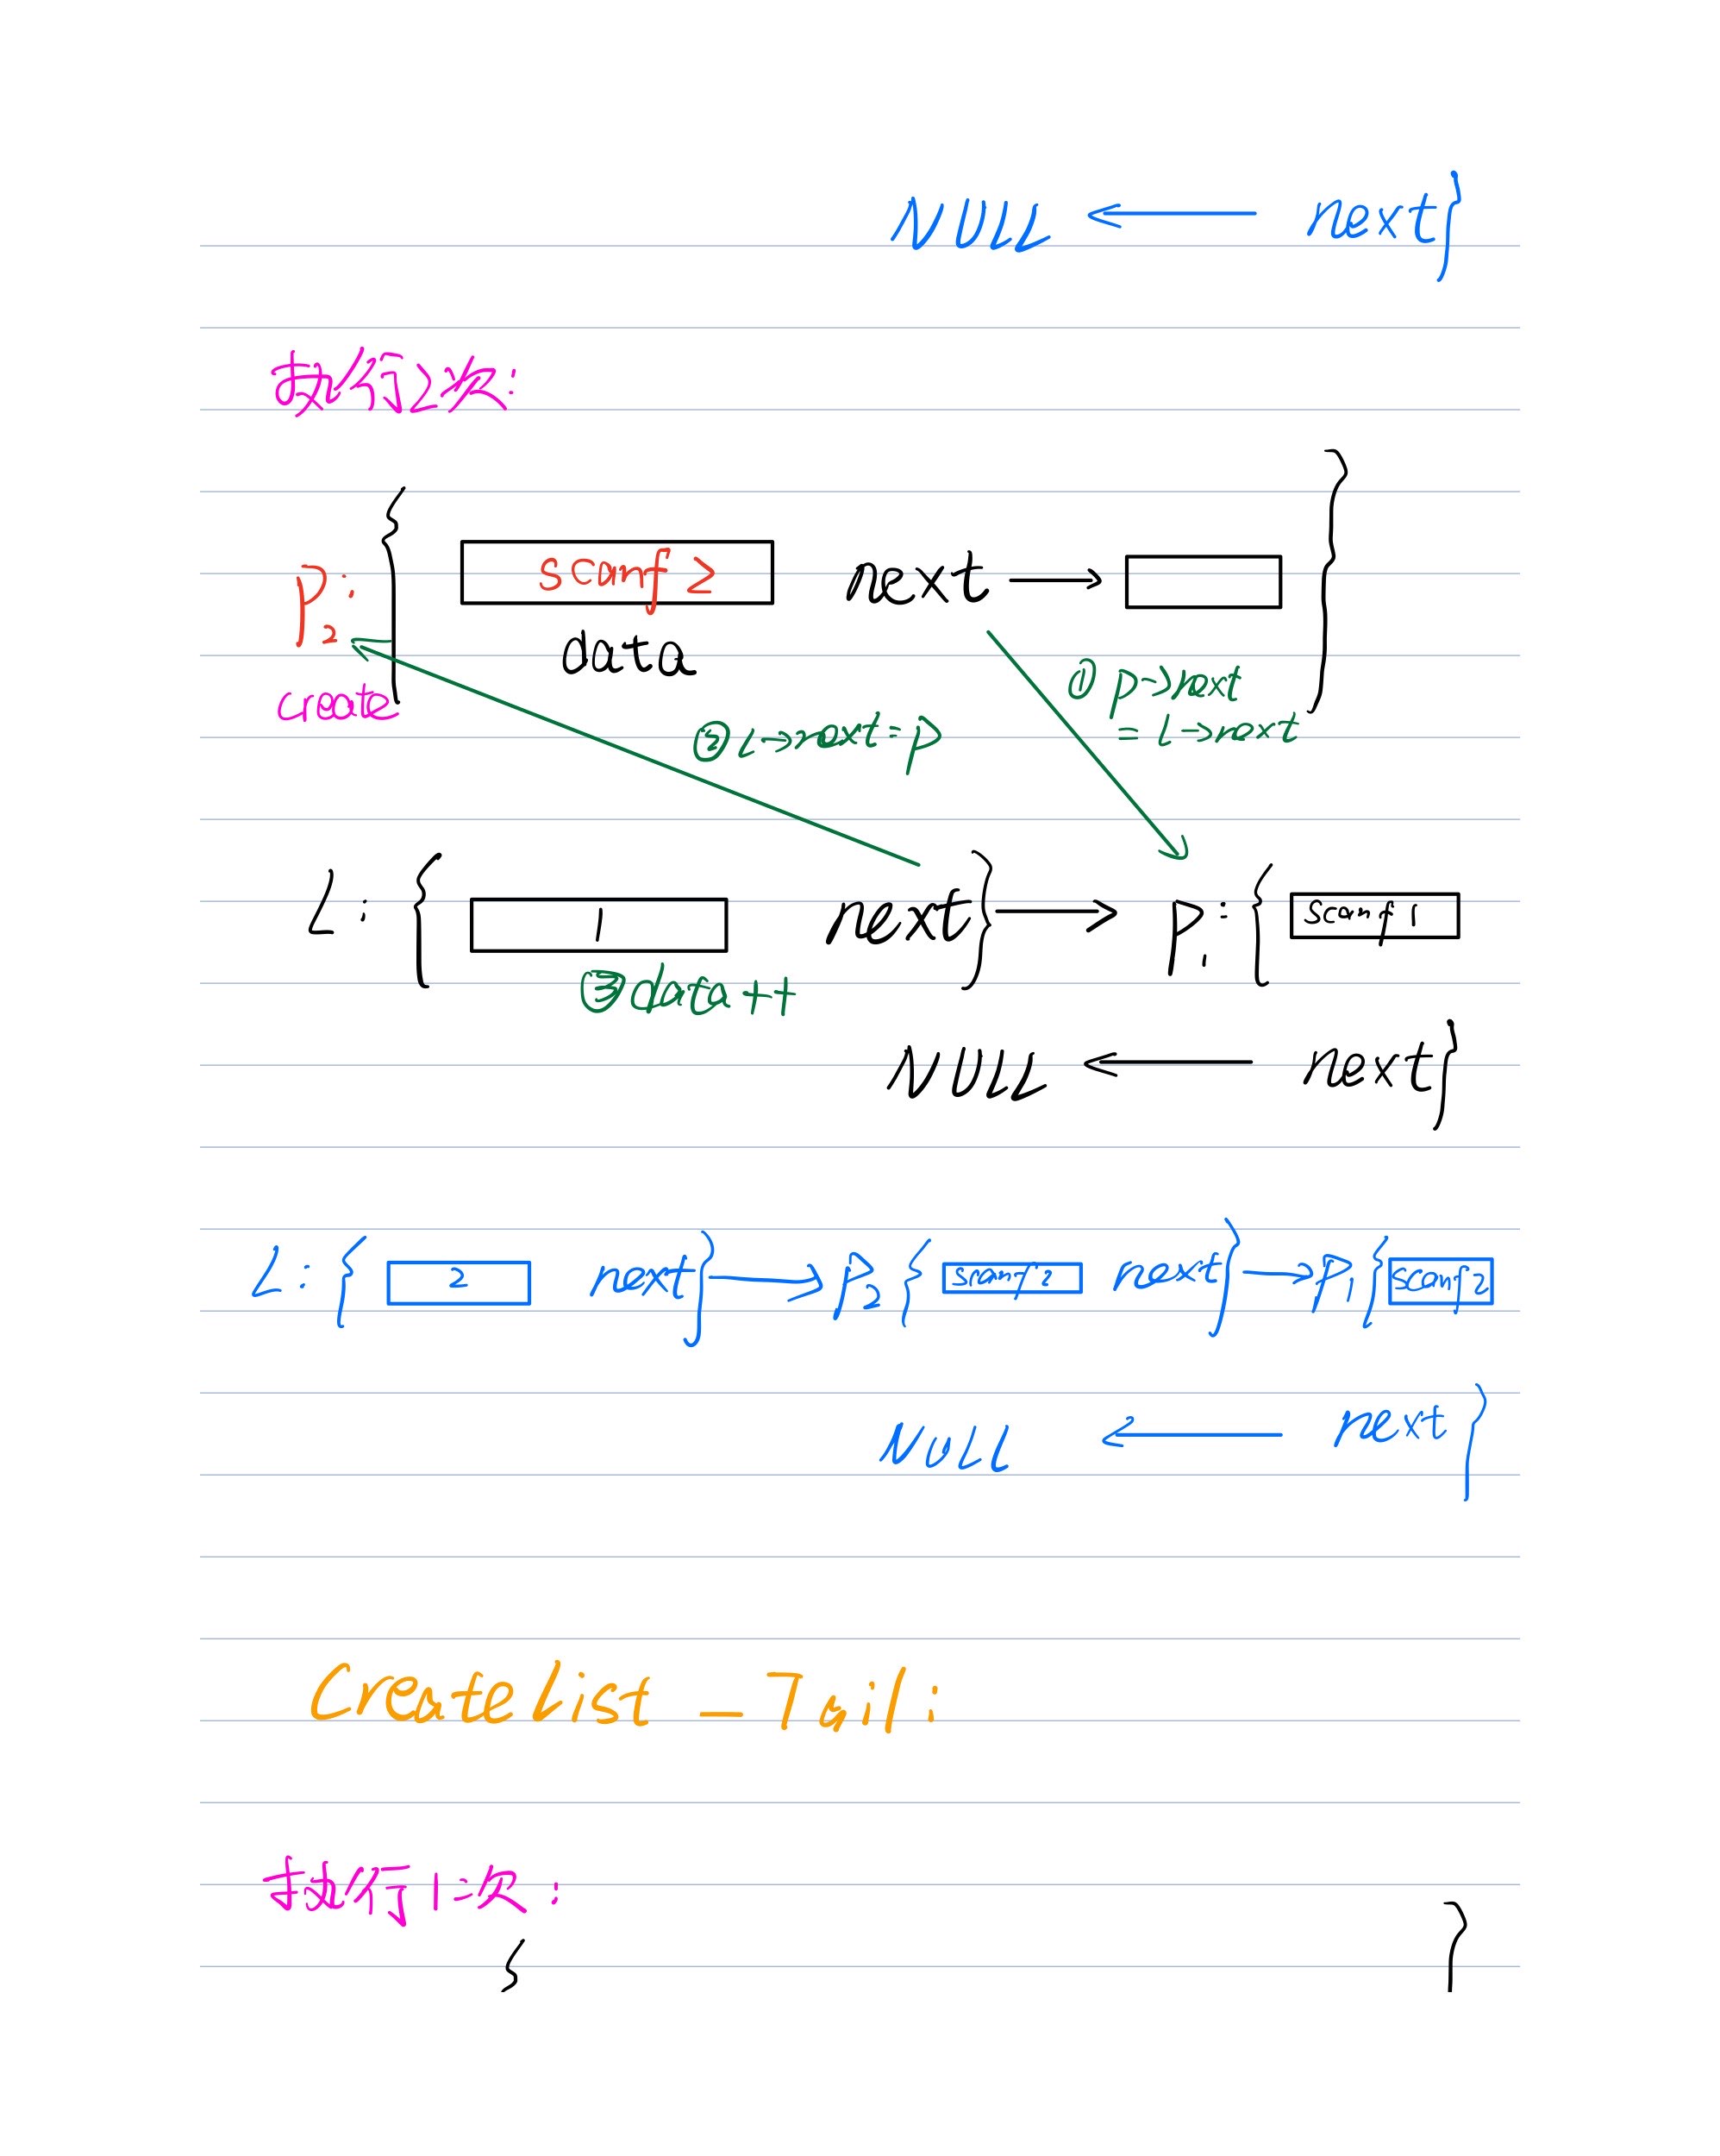 NULL ← next}
执行2次:
P2: { scanf 2 next → }
data
create
① p->next
= L->next
② L->next=p
L: { 1 next} → P1: { scanf 1
③ data++
NULL ← next}
L: { 2 next} → P2 { scanf 2 next} → P1 { scanf 2
NULL ← next }
CreateList_Tail:
执行1次:
{ }